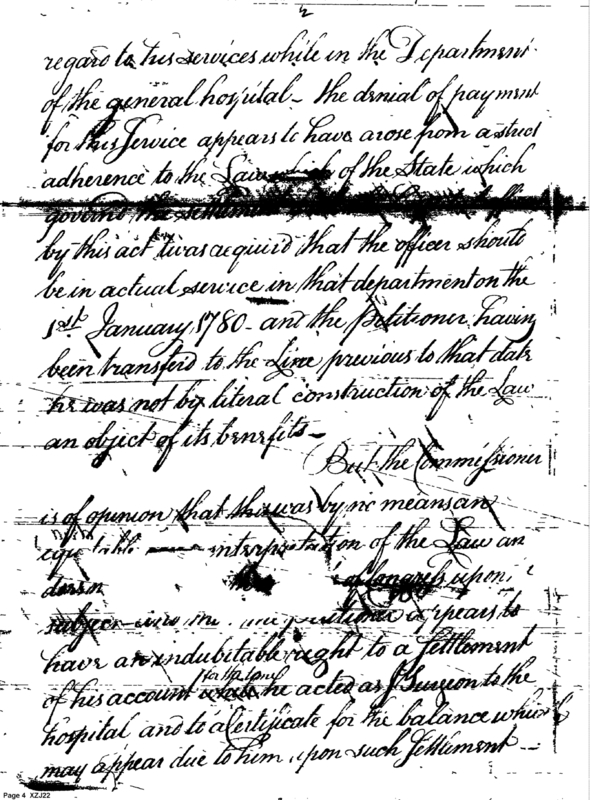 2
regard to his services while in the Department
of the general hospital – the denial of payment
for this Service appears to have arose from a strict
adherence to the Law of the State which
governs the settlement
by this act twas requird that the officer should
be in actual service in that department on the
1st January 1780 – and the Petitioner having
been transferd to the Line previous to that date
he was not by literal construction of the Law
an object of its benefits –
But the Commissioner
is of opinion that this was by no means an
equitable interpretation of the Law an
does n of Congress upon
subject petitioner appears to
have an indubitable right to a Settlement
of his account he acted as Surgeon to the
hospital and to a Certificate for the balance which
may appear due to him upon such Settlement –
Page 4 XZJ22